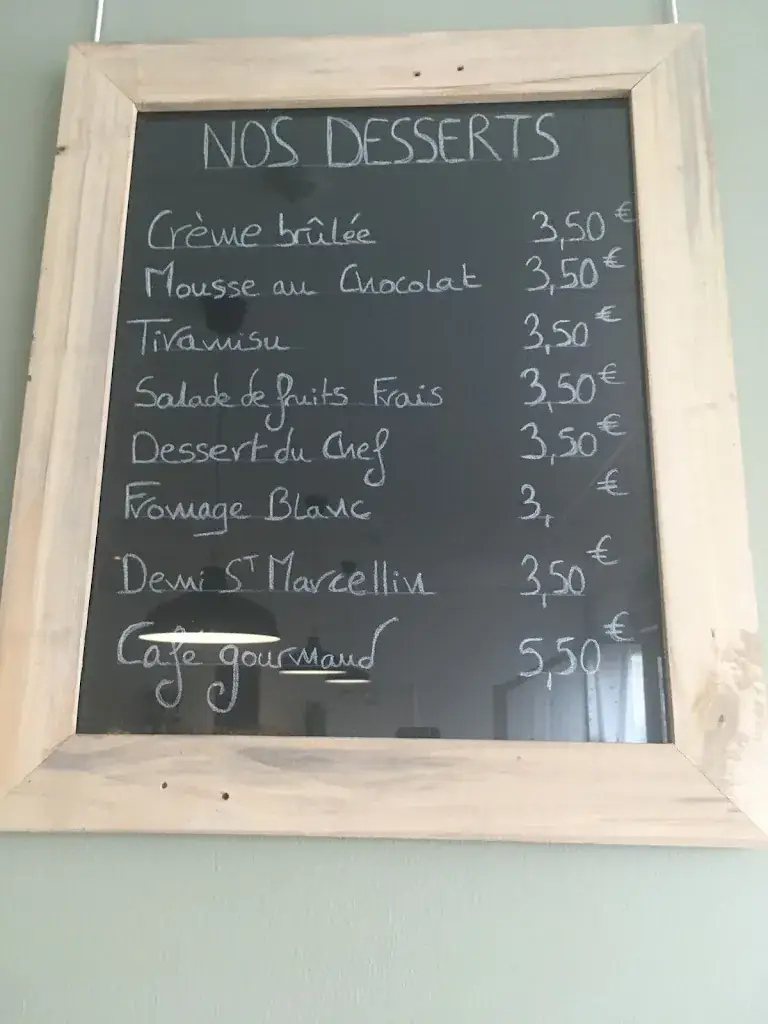 NOS DESSERTS
Crème brûlée 3,50€
Mousse au Chocolat 3,50€
Tiramisu 3,50€
Salade de fruits Frais 3,50€
Dessert du Chef 3,50€
Fromage Blanc 3, €
Demi ST Marcellin 3,50€
Café gourmand 5,50€